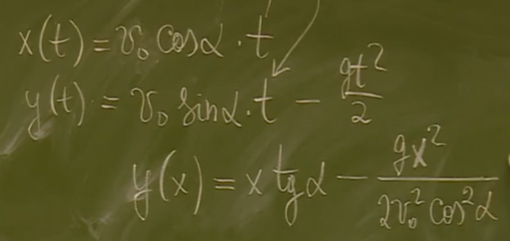 x(t) = v₀ cosα · t
y(t) = v₀ sinα · t − gt²/2
y(x) = x tgα − gx²/2v₀² cos²α